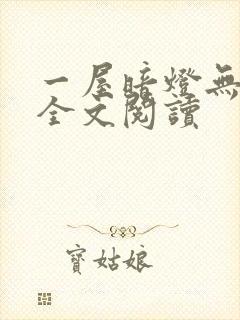 一屋暗燈無
全文閱讀
寶姑娘